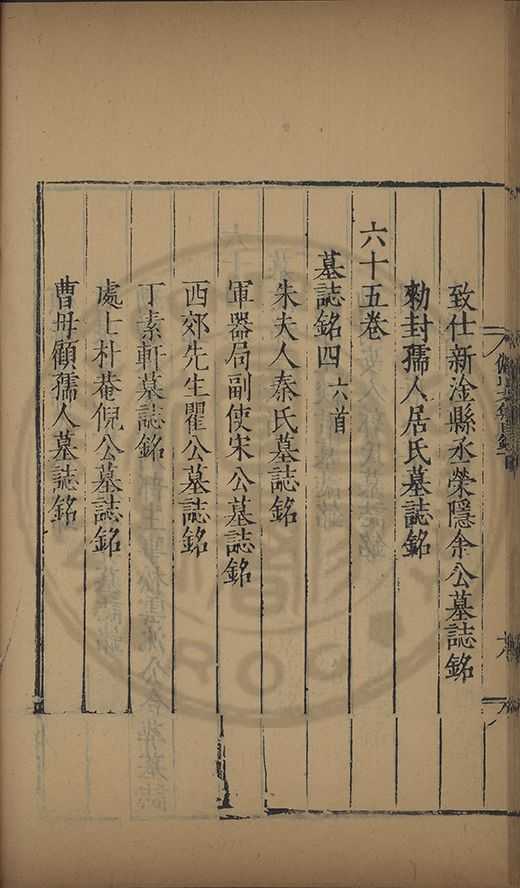 致仕新淦縣丞榮隱余公墓誌銘
勑封孺人居氏墓誌銘
六十五卷
墓誌銘四 六首
朱夫人秦氏墓誌銘
軍器局副使宋公墓誌銘
西郊先生瞿公墓誌銘
丁素軒墓誌銘
處士朴菴倪公墓誌銘
曹母顧孺人墓誌銘